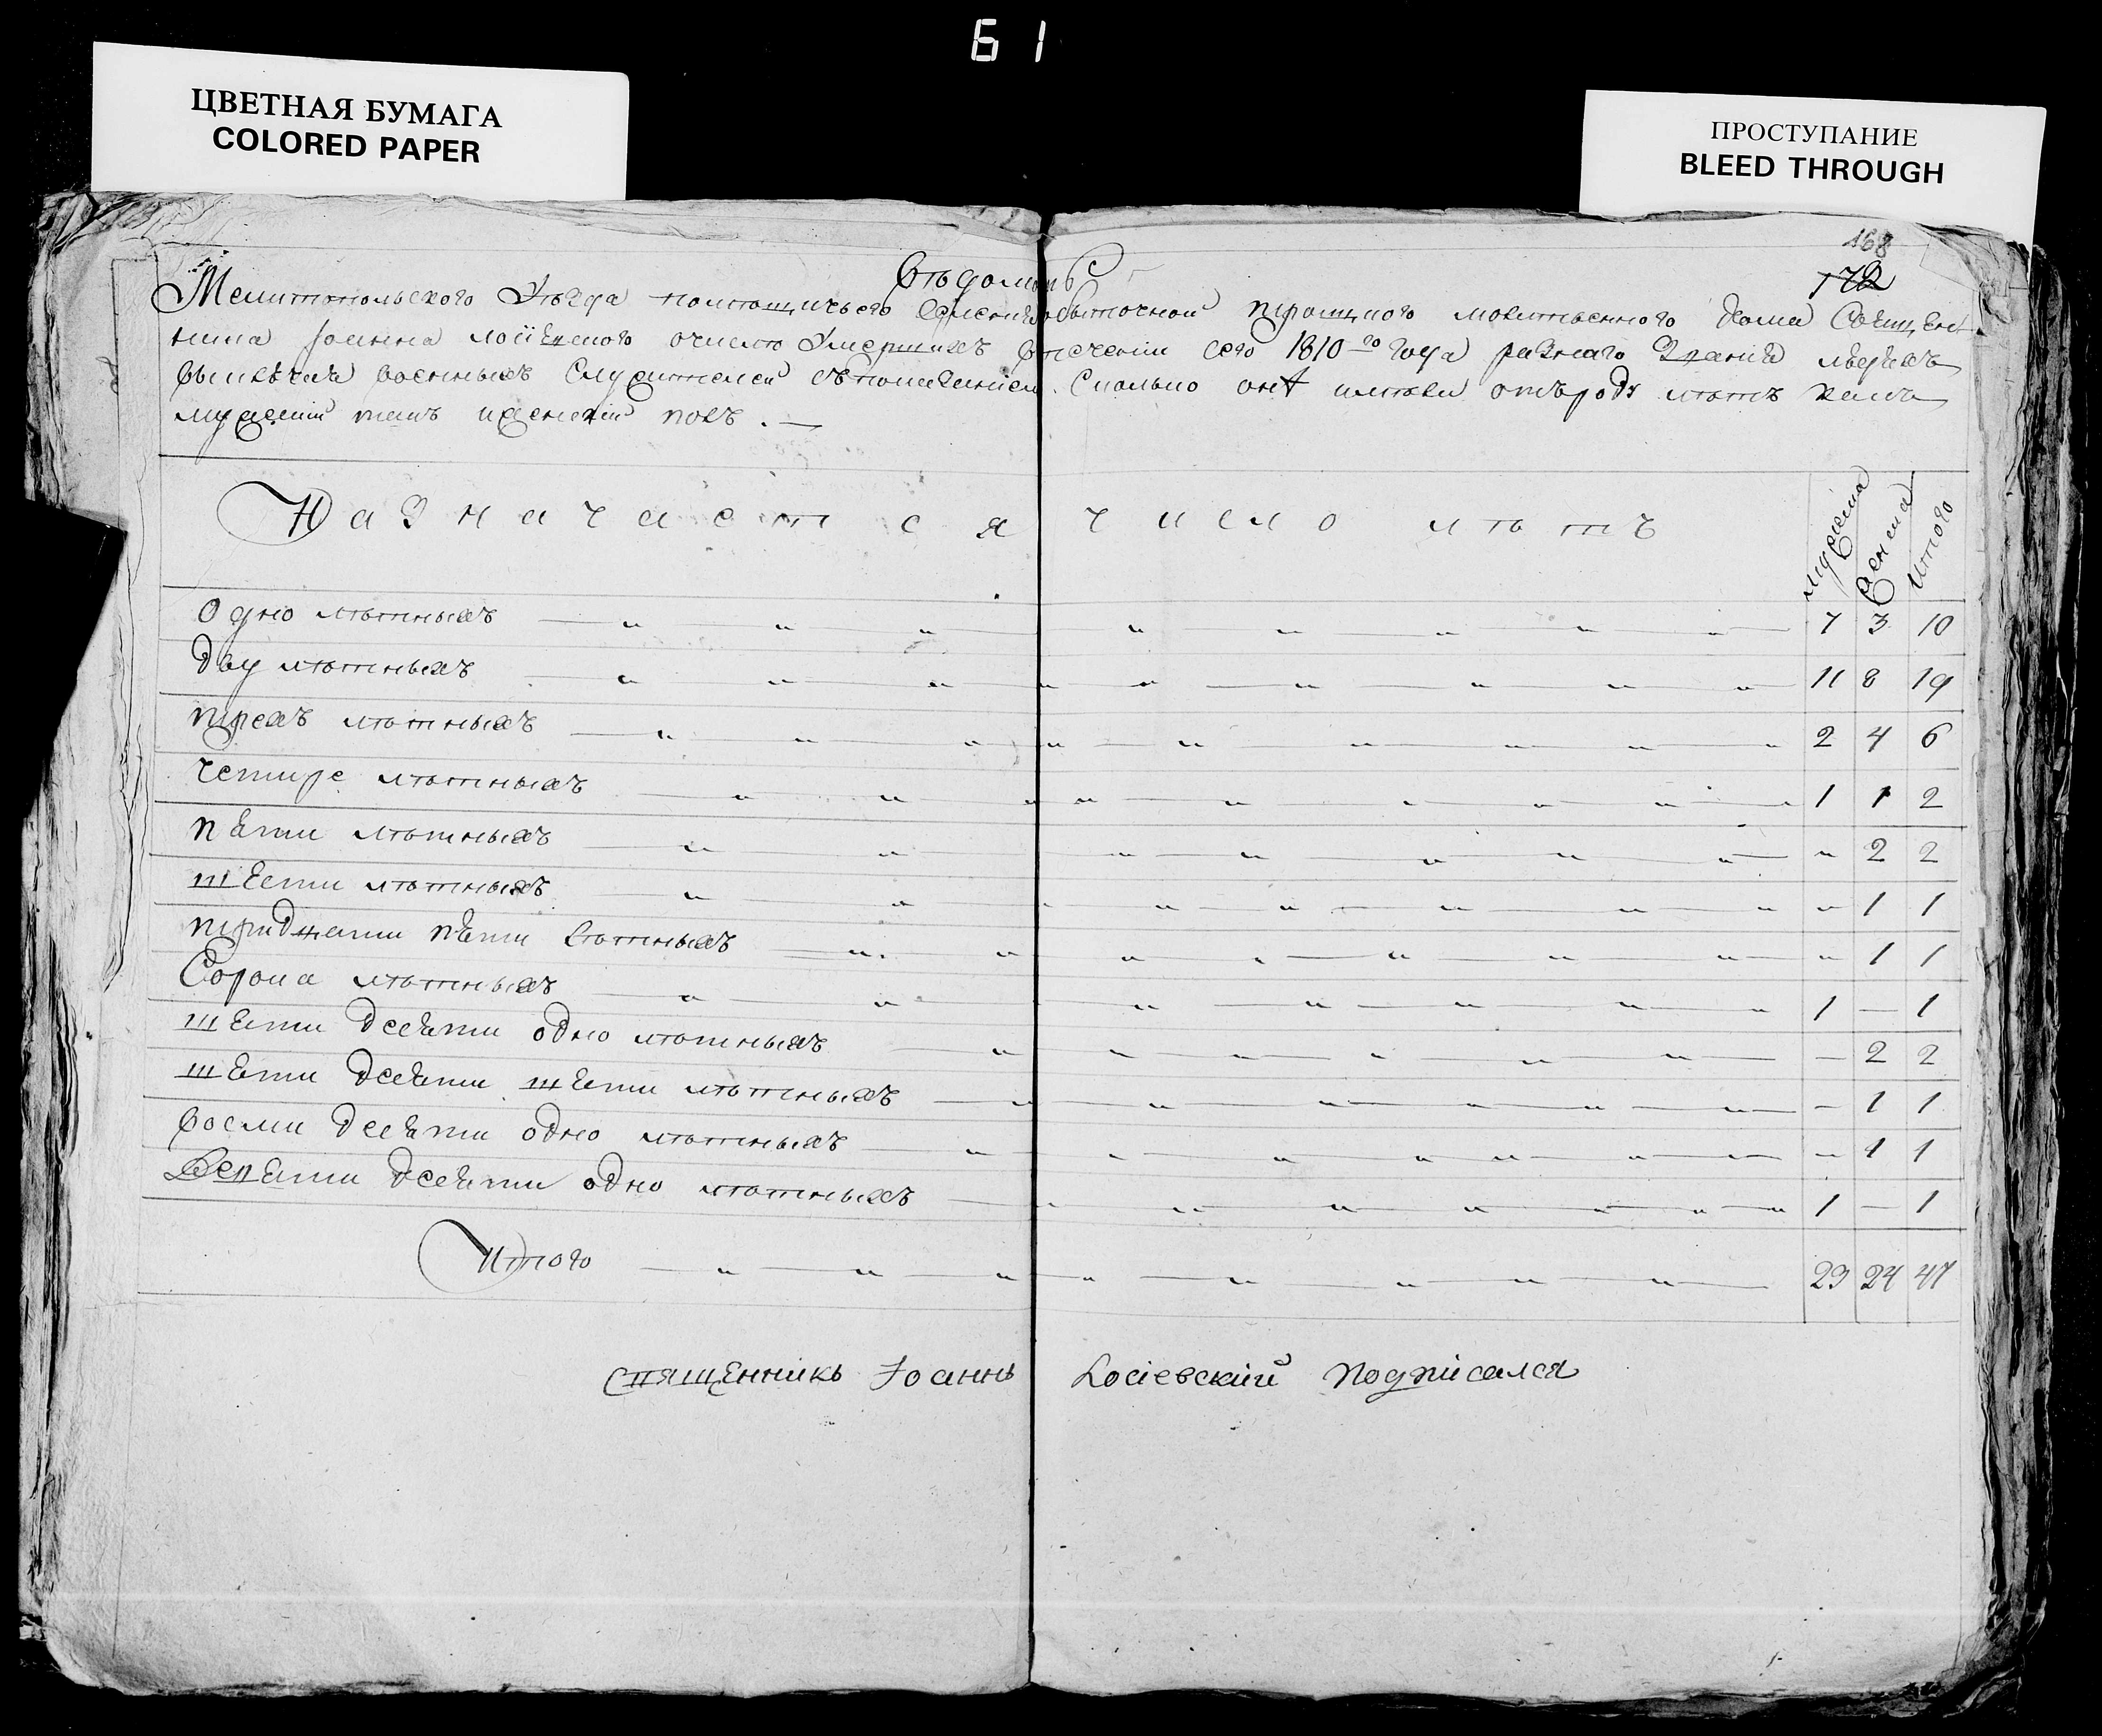 Б1
ЦВЕТНАЯ БУМАГА
COLORED PAPER
ПРОСТУПАНИЕ
BLEED THROUGH
168
172
Вѣдомость
Мелитопольского Уѣзда помѣщичьего троицкого молитвенного дома Свящѣн
ника Іоанна очислѣ Умершихъ втечении сего 1810-го года разнаго Званія людехъ
военныхъ Служителей Сколько онѣ имѣли отъроду лѣтъ какъ
мужеский такъ иженский полъ . —
Назначается число лѣтъ
мужеска
женска
Итого
Одно лѣтныхъ 7 3 10
Dву лѣтныхъ 11 8 19
трехъ лѣтныхъ 2 4 6
Четире лѣтныхъ 1 1 2
пѣти лѣтныхъ " 2 2
шѣсти лѣтныхъ " 1 1
триdцати пѣти лѣтныхъ " 1 1
Сорока лѣтныхъ 1 — 1
шѣсти dесѣти оdно лѣтныхъ — 2 2
шѣсти dесѣти шѣсти лѣтныхъ — 1 1
восми dесѣти оdно лѣтныхъ " 1 1
Девѣти dесѣти оdно лѣтныхъ 1 — 1
Итого 23 24 47
Священникъ Іоаннъ Лосіевскій подписался